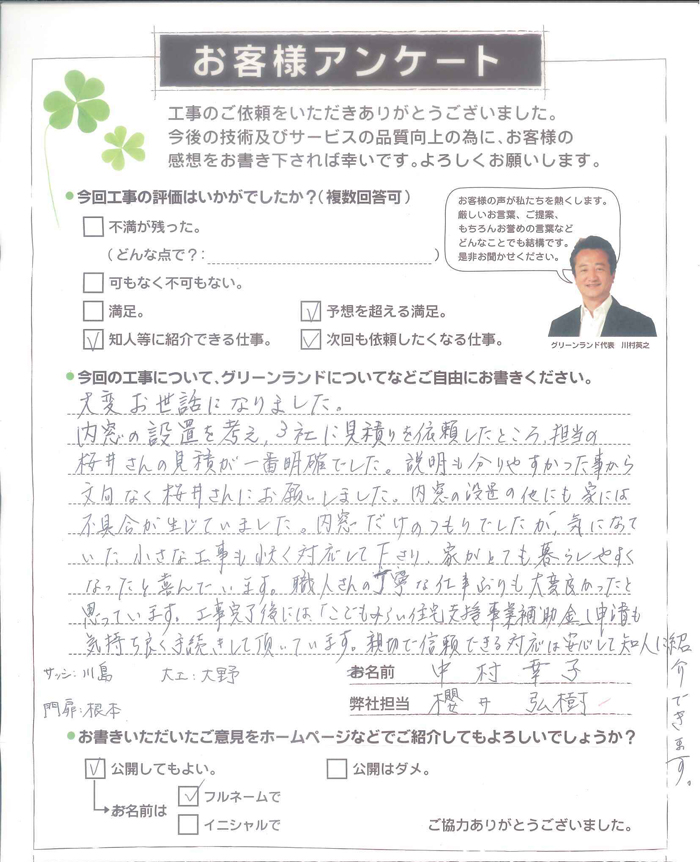 お客様アンケート
工事のご依頼をいただきありがとうございました。
今後の技術及びサービスの品質向上の為に、お客様の
感想をお書き下されば幸いです。よろしくお願いします。
●今回工事の評価はいかがでしたか?(複数回答可)
お客様の声が私たちを熱くします。
厳しいお言葉、ご提案、
もちろんお誉めの言葉など
どんなことでも結構です。
是非お聞かせください。
不満が残った。
(どんな点で?: )
可もなく不可もない。
満足。
予想を超える満足。
知人等に紹介できる仕事。
次回も依頼したくなる仕事。
グリーンランド代表 川村英之
●今回の工事について、グリーンランドについてなどご自由にお書きください。
大変お世話になりました。
内窓の設置を考え、3社に見積りを依頼したところ、担当の
桜井さんの見積が一番明確でした。説明も分りやすかった事から
文句なく桜井さんにお願いしました。内窓の設置の他にも家には
不具合が生じていました。内窓だけのつもりでしたが、気になって
いた小さな工事も快く対応して下さり、家がとても暮らしやすく
なったと喜んでいます。職人さんの丁寧な仕事ぶりも大変良かったと
思っています。工事完了後には「こどもみらい住宅支援事業補助金」申請も
気持ち良く手続きして頂いています。親切で信頼できる対応は安心して知人に紹
介できます。
サッシ:川島 大工:大野
お名前 中村幸子
門扉:根本
弊社担当 櫻井 弘樹
●お書きいただいたご意見をホームページなどでご紹介してもよろしいでしょうか?
公開してもよい。
公開はダメ。
お名前は
フルネームで
イニシャルで
ご協力ありがとうございました。